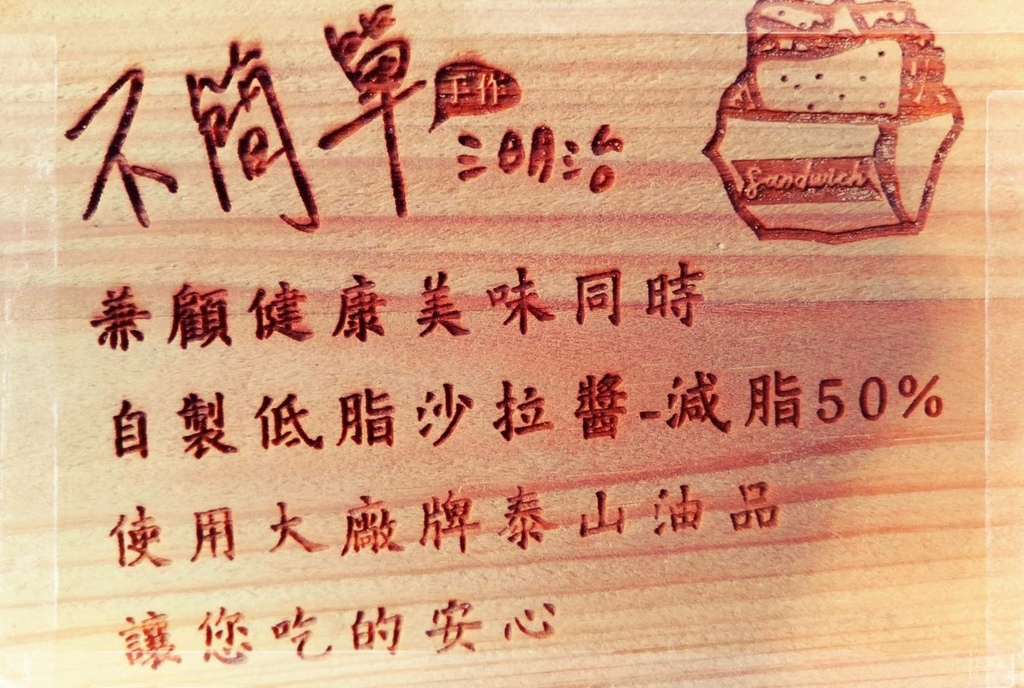 不簡單
手作
三明治
Sandwich
兼顧健康美味同時
自製低脂沙拉醬-減脂50%
使用大廠牌泰山油品
讓您吃的安心